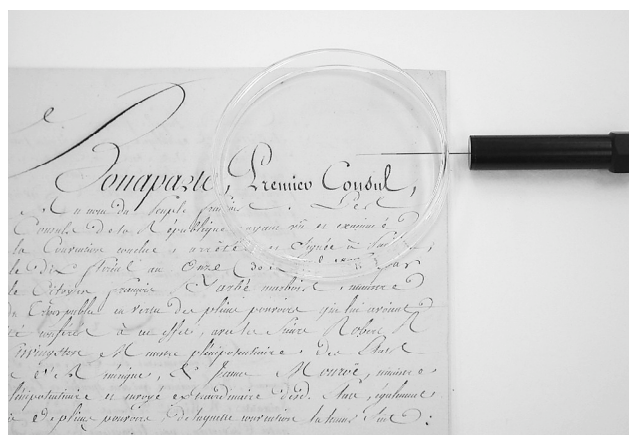 Bonaparte, Premier Consul,
Au nom du Peuple français. Les
Consuls de la République ayant vu et examiné
la Convention conclue, arrêtée et signée à
le dix floréal an Onze
le Citoyen françois Barbé marbois, ministre
du Trésor public en vertu des pleins pouvoirs qui lui avoient
été conférés à cet effet, avec les Sieurs Robert R
Livingston Ministre plénipotentiaire des États
d'Amérique, & James Monroe, ministre
plénipotentiaire et envoyé extraordinaire desd. États, également
de pleins pouvoirs, de laquelle convention la teneur suit :